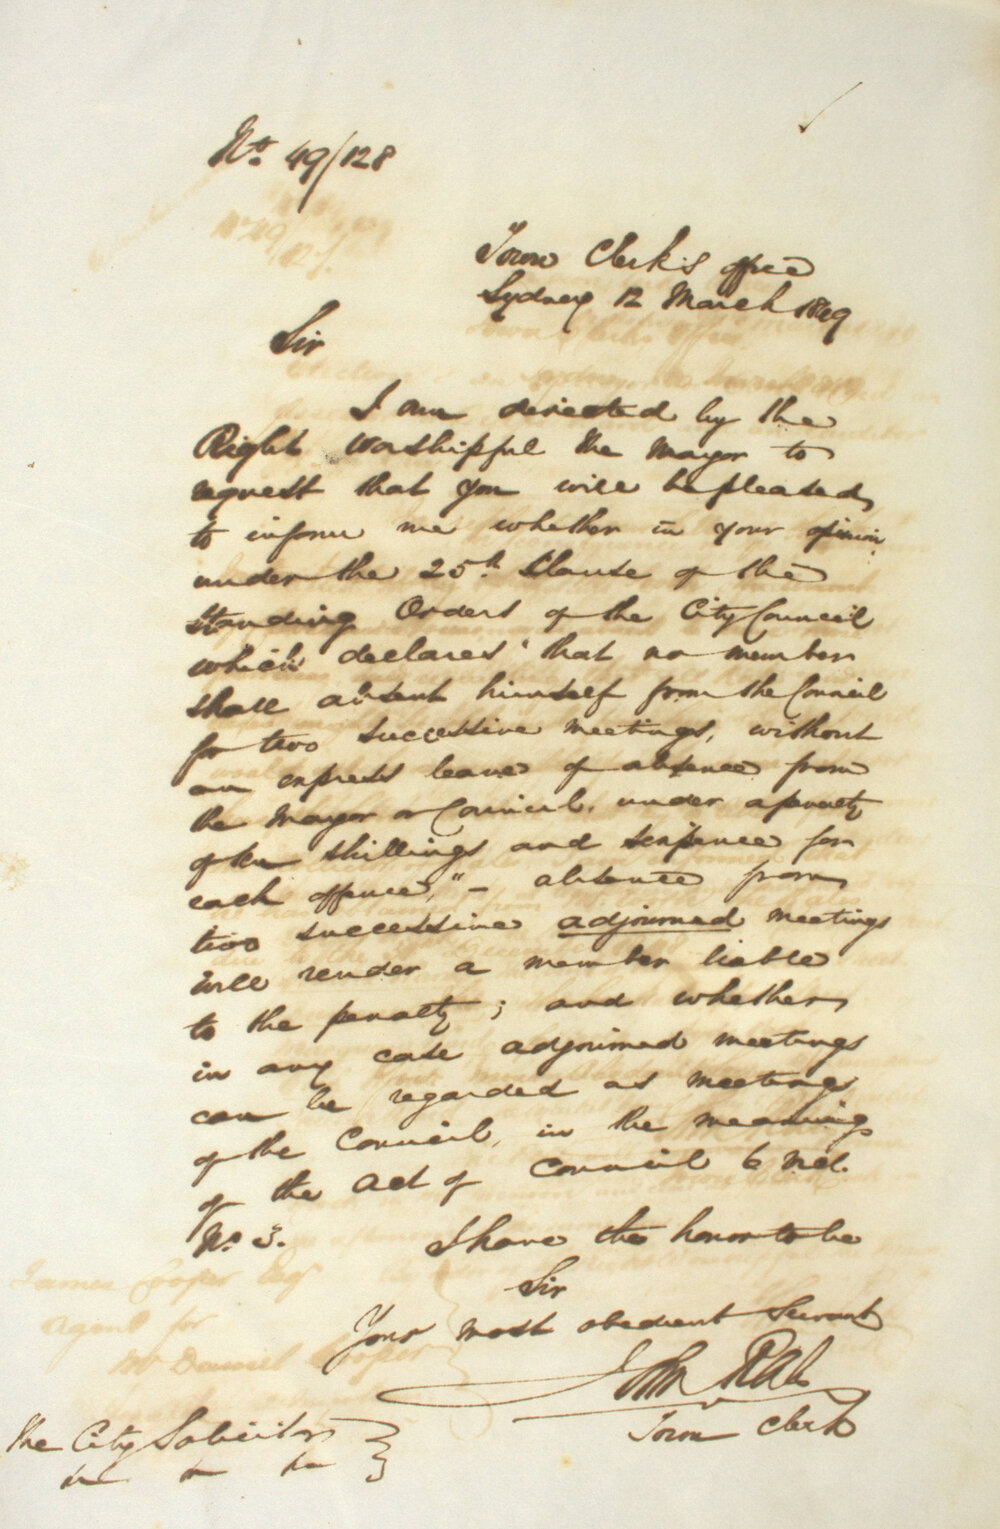 No. 49/128
Town Clerk's office
Sydney 12 March 1849
Sir
I am directed by the
Right Worshipful the Mayor to
request that you will be pleased
to inform me whether in your opinion
under the 25th Clause of the
Standing Orders of the City Council
which declares "that no member
shall absent himself from the Council
for two successive meetings, without
an express leave of absence from
the Mayor or Council, under a penalty
of ten shillings and sixpence for
each offence," – absence from
two successive adjourned meetings
will render a member liable
to the penalty; and whether
in any case adjourned meetings
can be regarded as meetings
of the Council, in the meaning
of the Act of Council 6 Vict.
No 3.
I have the honor to be
Sir
Your most obedient Servant
John Rae
Town Clerk
The City Solicitor
James Cooper Esqr
Agent for
Mr Daniel Cooper